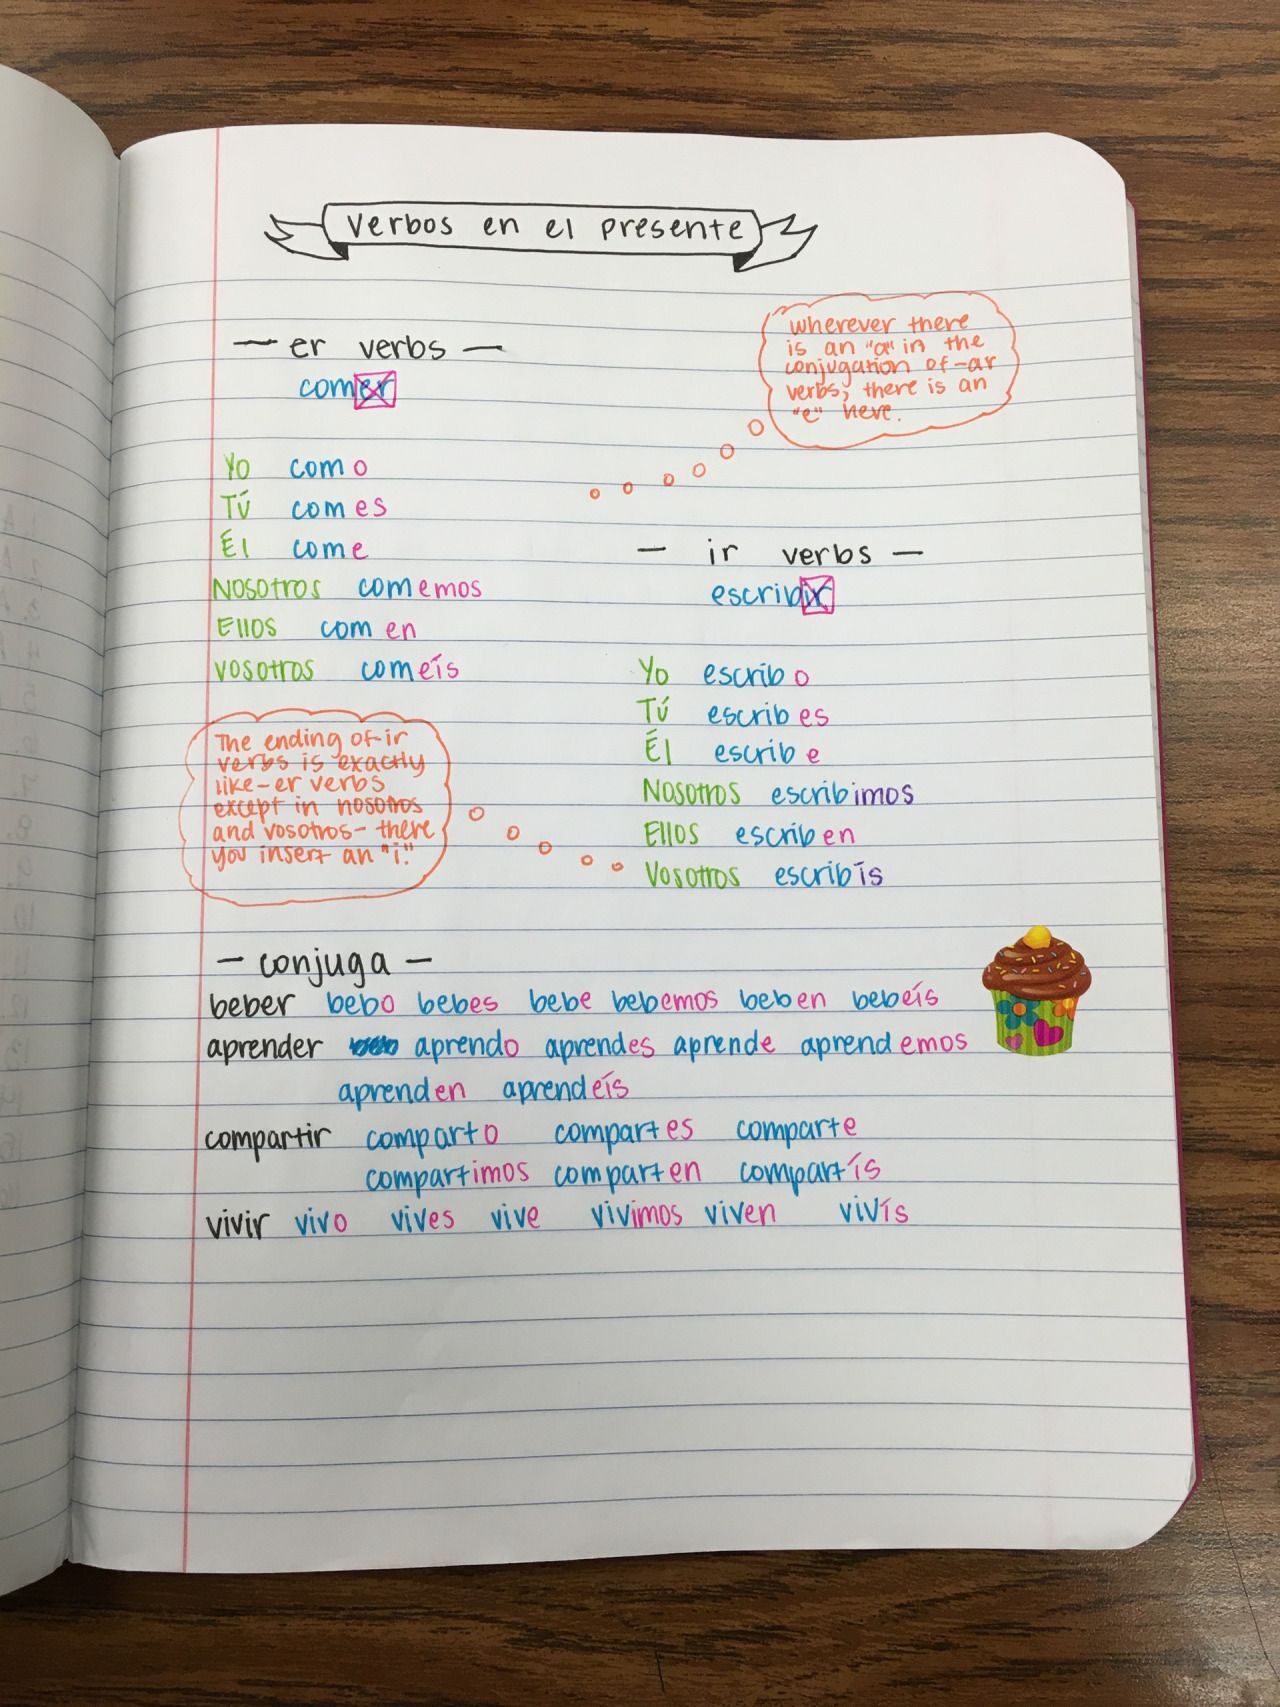 Verbos en el presente
— er verbs —
comer
wherever there
is an "a" in the
conjugation of -ar
verbs, there is an
"e" here.
Yo como
Tú comes
Él come
Nosotros comemos
Ellos comen
Vosotros comeís
— ir verbs —
escribir
Yo escribo
Tú escribes
Él escribe
Nosotros escribimos
Ellos escriben
Vosotros escribís
The ending of -ir
verbs is exactly
like -er verbs
except in nosotros
and vosotros - there
you insert an "i."
— conjuga —
beber bebo bebes bebe bebemos beben bebeís
aprender aprendo aprendes aprende aprendemos
aprenden aprendeís
compartir comparto compartes comparte
compartimos comparten compartís
vivir vivo vives vive vivimos viven vivís